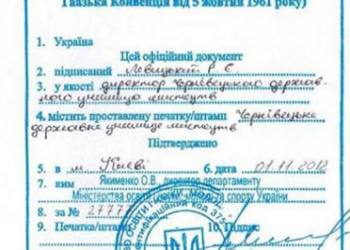 Гаазька Конвенція від 5 жовтня 1961 року)
1. Україна
Цей офіційний документ
2. підписаний Левицький Р Є
3. у якості директор Чернівецького держав-
ного училища мистецтв
4. містить проставлену печатку/штамп Чернівецьке
державне училище мистецтв
Підтверджено
5. в м Києві 6. дата 01.11.2012
7. ким Якименко О.В. директор департаменту
Міністерства освіти і науки, молоді та спорту України
8. за № 2777
9. Печатка/штамп 10. Підпис